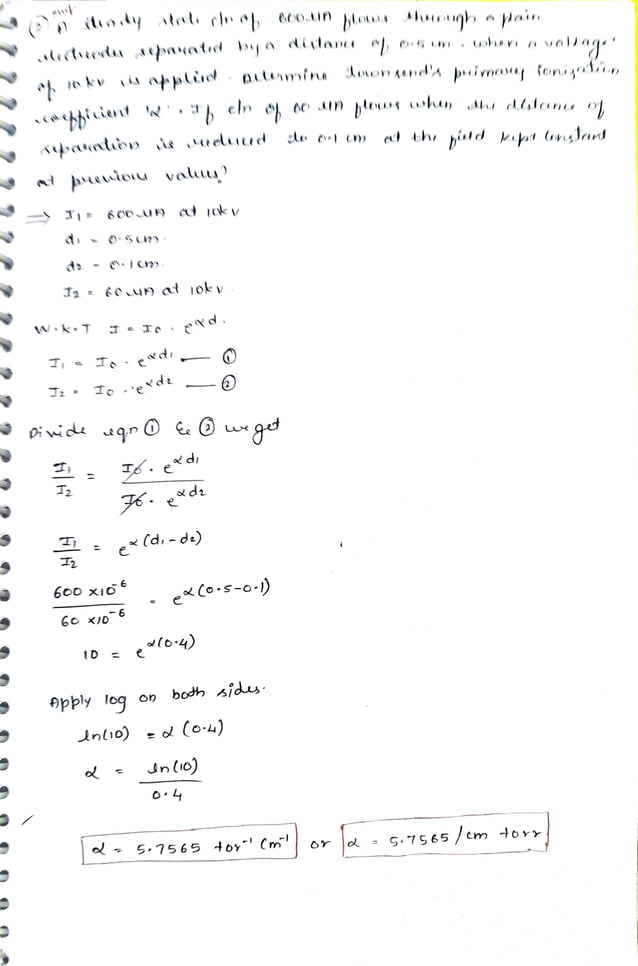 imp
② A steady state c/n of 600 µA flows through a plain
electrodes separated by a distance of 0.5 cm. when a voltage
of 10 kv is applied. Determine townsend's primary ionization
coefficient 'α'. If c/n of 60 µA flows when the distance of
separation is reduced to 0.1 cm at the field kept constant
at previous values?
⇒ I₁ = 600 µA at 10kv
d₁ = 0.5cm.
d₂ = 0.1cm.
I₂ = 60 µA at 10kv.
W.K.T I = I₀ . e^αd.
I₁ = I₀ . e^αd₁ — ①
I₂ = I₀ . e^αd₂ — ②
Divide eqn ① & ② we get
I₁/I₂ = I₀ . e^αd₁ / I₀ . e^αd₂
I₁/I₂ = e^α(d₁-d₂)
600 ×10^-6 / 60 ×10^-6 = e^α(0.5-0.1)
10 = e^α(0.4)
Apply log on both sides.
ln(10) = α (0.4)
α = ln(10) / 0.4
α = 5.7565 tor^-1 cm^-1 or α = 5.7565 /cm torr